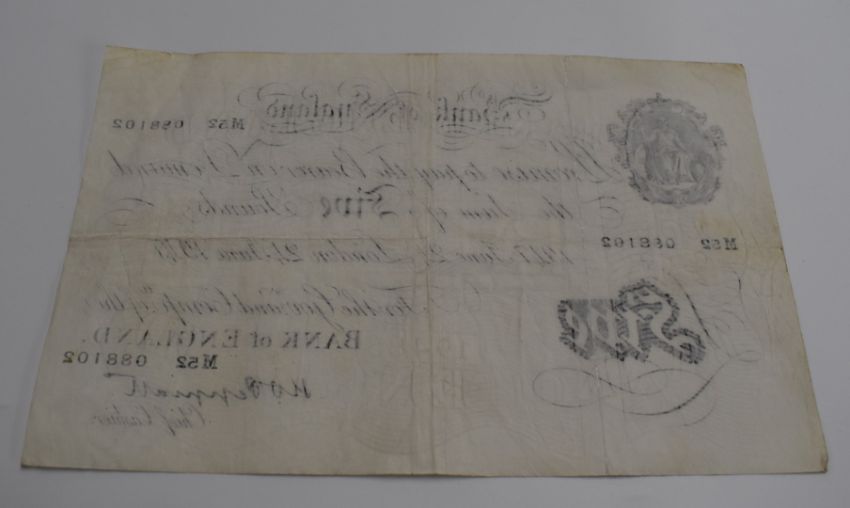 Bank of England
M52 088102
I Promise to pay the Bearer on Demand
the Sum of Five Pounds
M52 088102
1947 June 21 London 21 June 1947
For the Gov.r and Comp.a of the
BANK of ENGLAND.
Five
M52 088102
K O Peppiatt
Chief Cashier